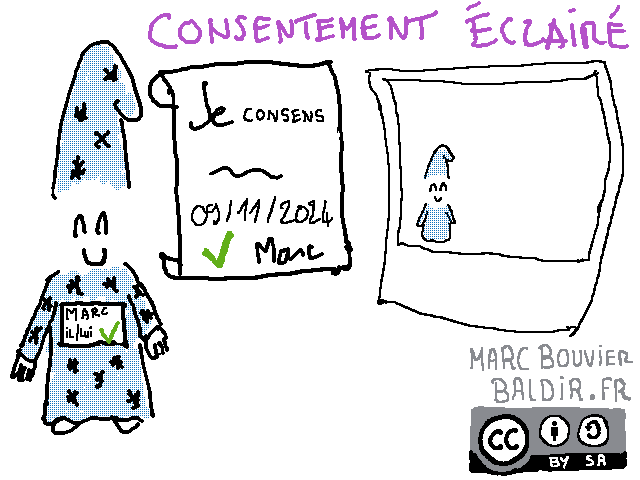 CONSENTEMENT ÉCLAIRÉ
Je CONSENS
09/11/2024
Marc
MARC
il/lui
MARC BOUVIER
BALDIR.FR
CC
BY SA